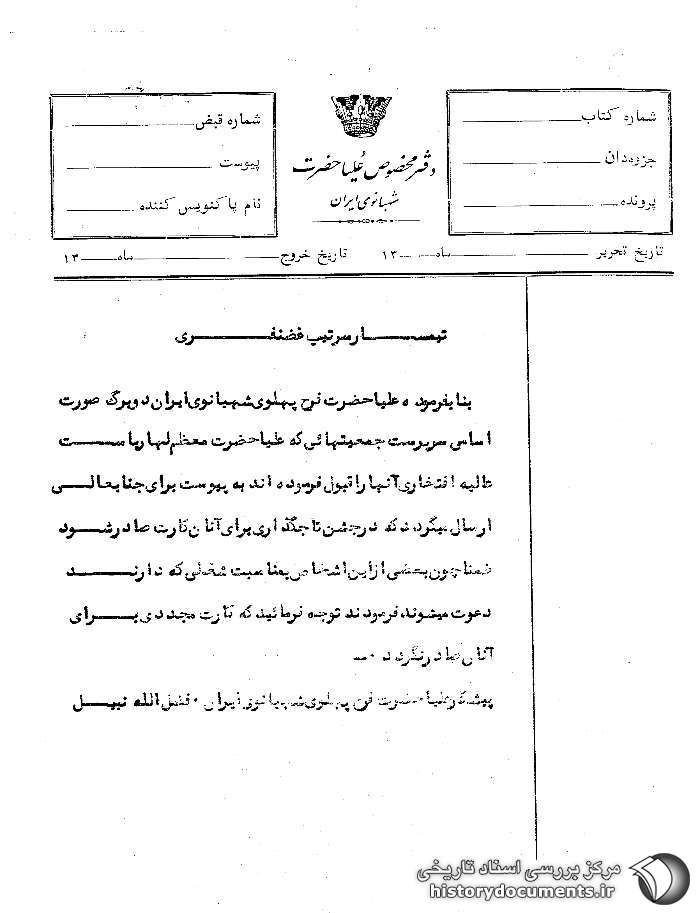 شماره کتاب
جزوه‌دان
پرونده
دفتر مخصوص علیاحضرت
شهبانوی ایران
شماره قبض
پیوست
نام پاکنویس کننده
تاریخ تحریر ماه ۱۳ تاریخ خروج ماه ۱۳
تیمسار سرتیپ غضنفری
بنا بفرموده علیاحضرت فرح پهلوی شهبانوی ایران دو برگ صورت
اسامی سرپرست جمعیتهائی که علیاحضرت معظم لها ریاست
عالیه افتخاری آنها را قبول فرموده اند به پیوست برای جنابعالی
ارسال میگردد که در جشن تاجگذاری برای آنان کارت صادر شود
ضمنا چون بعضی از این اشخاص بمناسبت شغلی که دارند
دعوت میشوند، فرمودند توجه فرمائید که کارت مجددی برای
آنان صادر نگردد ۰ــ
پیشکار علیاحضرت فرح پهلوی شهبانوی ایران ۰ فضل الله نبیل
مرکز بررسی اسناد تاریخی
historydocuments.ir